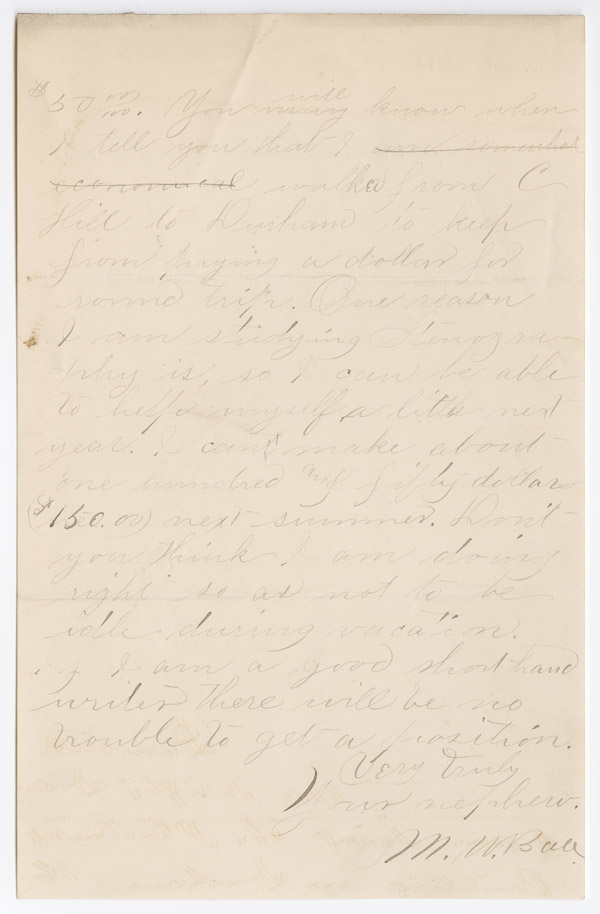 $50 00/100. You may will know when
I tell you that I am somewhat
economical walked from C
Hill to Durham to keep
from paying a dollar for
round trip. One reason
I am studying Stenogra-
phy is, so I can be able
to help myself a little next
year. I can make about
one hundred and fifty dollars
($150.00) next summer. Don't
you think I am doing
right so as not to be
idle during vacation.
if I am a good short hand
writer there will be no
trouble to get a position.
Very Truly
Your nephew.
M. W. Ball